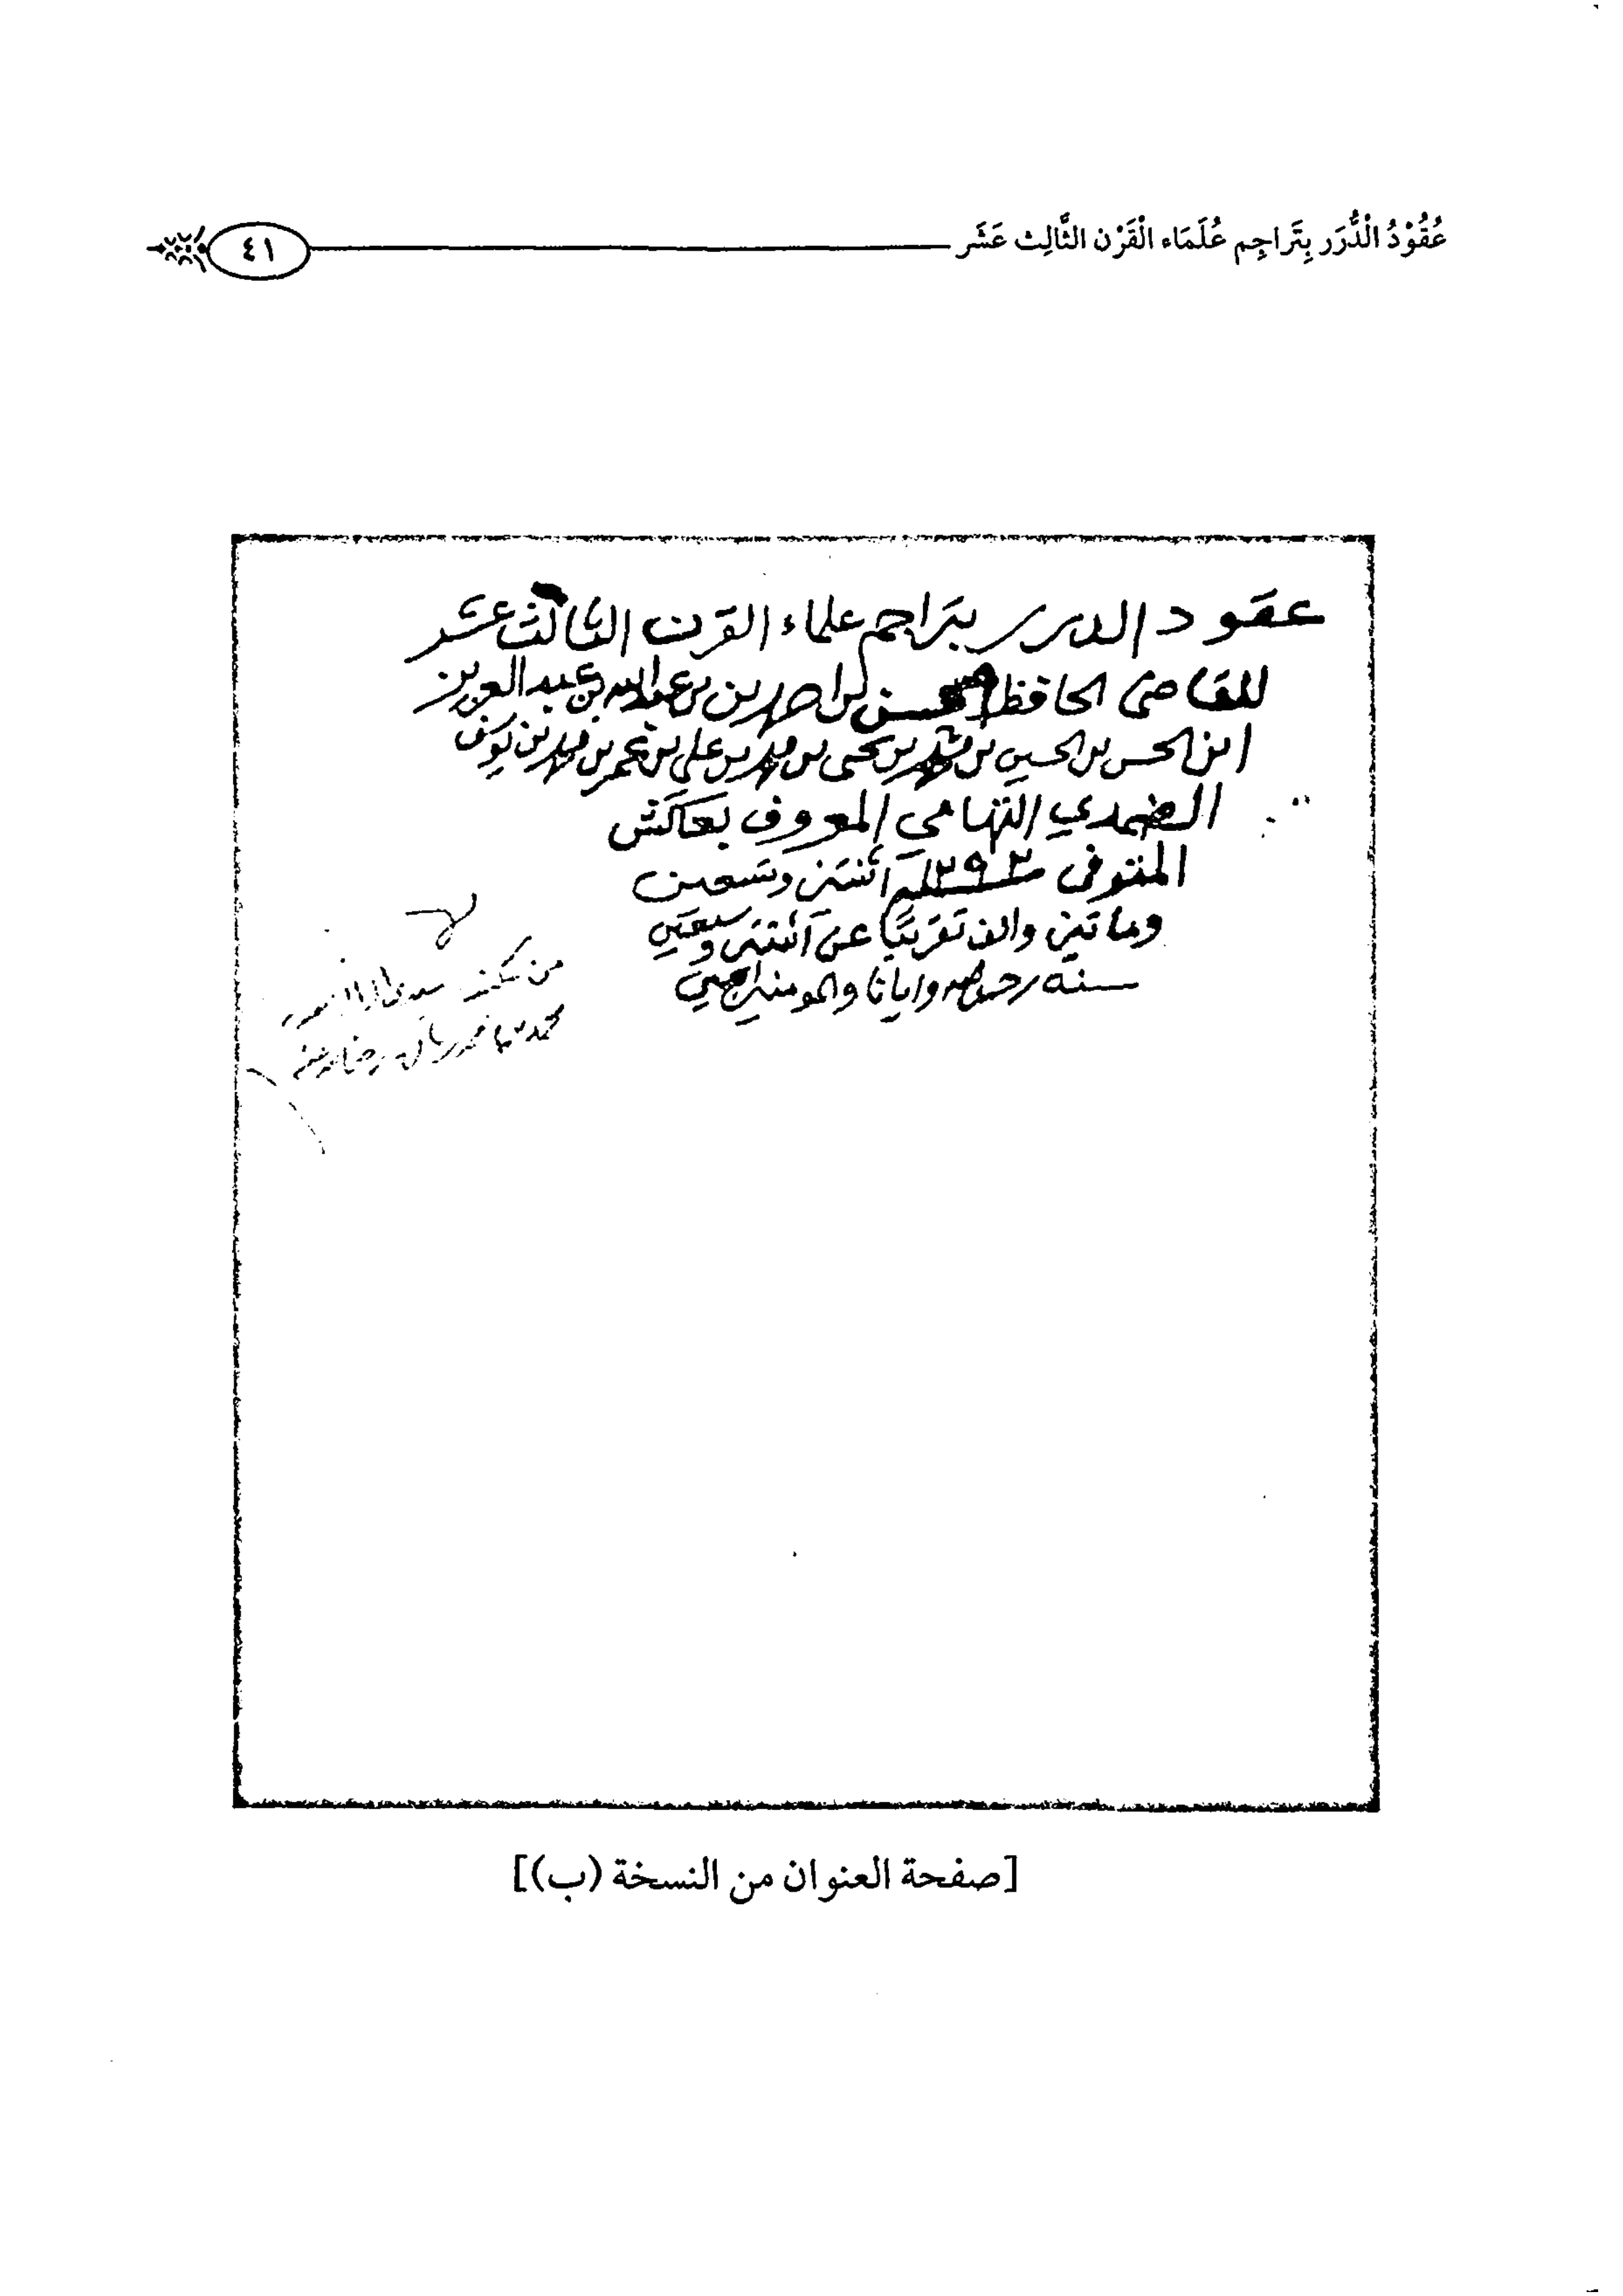 عُقُوْدُ الْدُّرَر بِتَراجِم عُلَمَاء الْقَرْن الثَّالِث عَشَر
٤١
عقود الدرر بتراجم علماء القرن الثالث عشر
للقاضى الحافظ حسن بن احمد بن عبدالله بن عبد العزيز
ابن الحسن بن الحسين بن محمد بن يحيى بن محمد بن علي بن عمر بن محمد بن يوسف
الضمدي التهامي المعروف بعاكش
المتوفى اثنتين وتسعين
وماتين والف تقريبًا عن اثنتين وسبعين
سنه رحمه الله وايانا والمومنين اجمعين
من
محمد
[صفحة العنوان من النسخة (ب)]